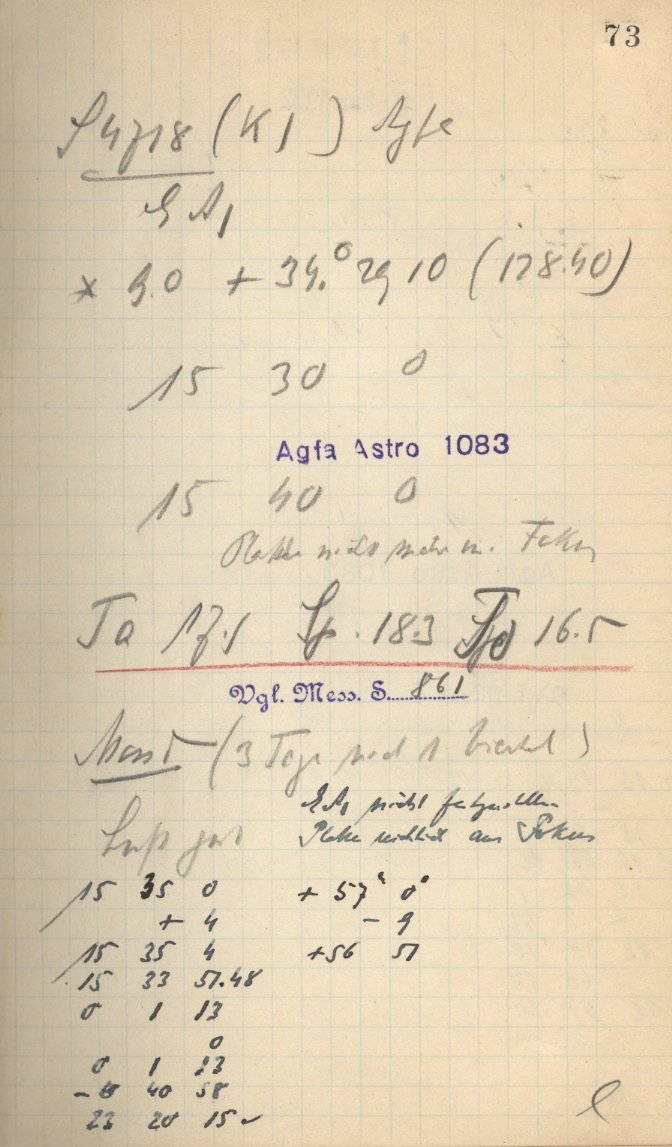 73
S4718 (K1) Agfa
E A1
* 9.0 + 34.° 29 10 (128.40)
15 30 0
Agfa Astro 1083
15 40 0
Platte nicht mehr in. Fokus
Ta 17.1 Sp. 18.3 16.5
Vgl. Mess. S. 861
Mond (3 Tage nach 1 Viertel)
Luft gut
E A1 nicht
Platte aus Fokus
15 35 0 + 57 0
+ 4 - 9
15 35 4 +56 51
15 33 51.48
0 1 13
0
0 1 13
40 58
23 20 15